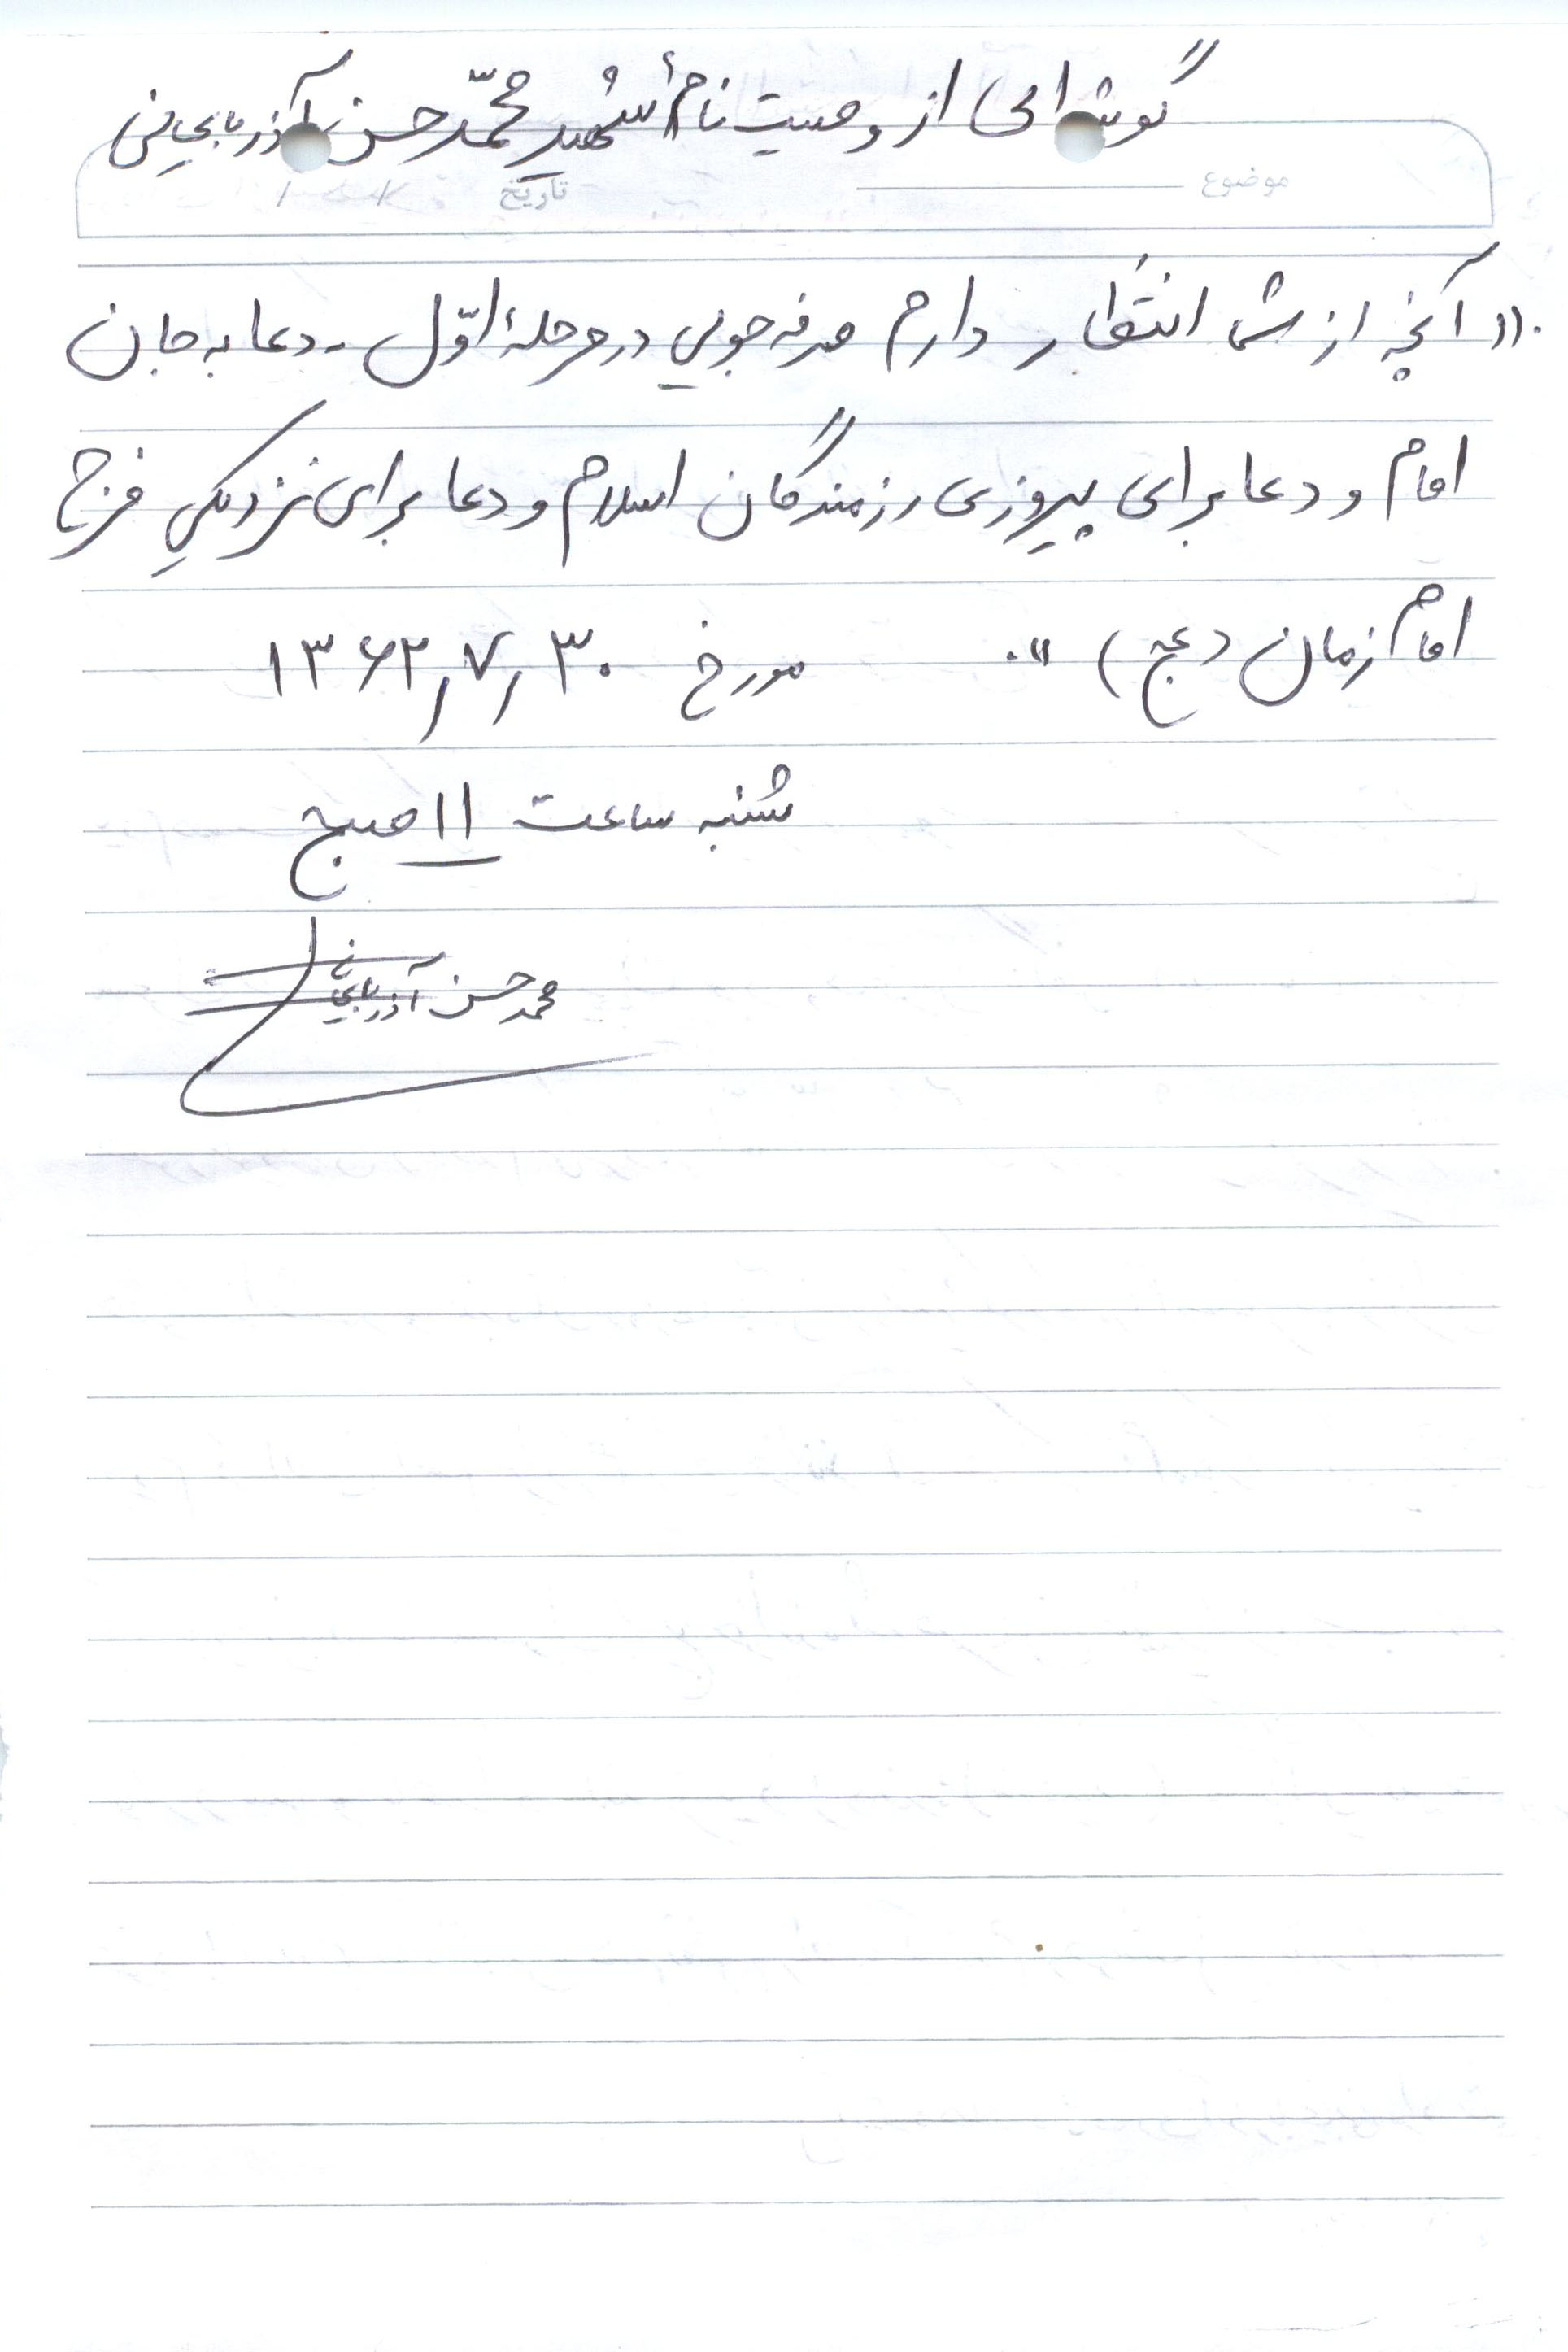 گوشه‌ای از وصیت نامهٔ شهید محمّد حسن آذربایجانی
موضوع تاریخ / /
«آنچه از شما انتظار دارم صرفه جویی در مرحلهٔ اوّل - دعا به جان
امام و دعا برای پیروزی رزمندگان اسلام و دعا برای نزدیکیِ فرج
امام زمان (عج)». مورخ ۱۳۶۲٫۷٫۳۰
شنبه ساعت ۱۱ صبح
محمد حسن آذربایجانی